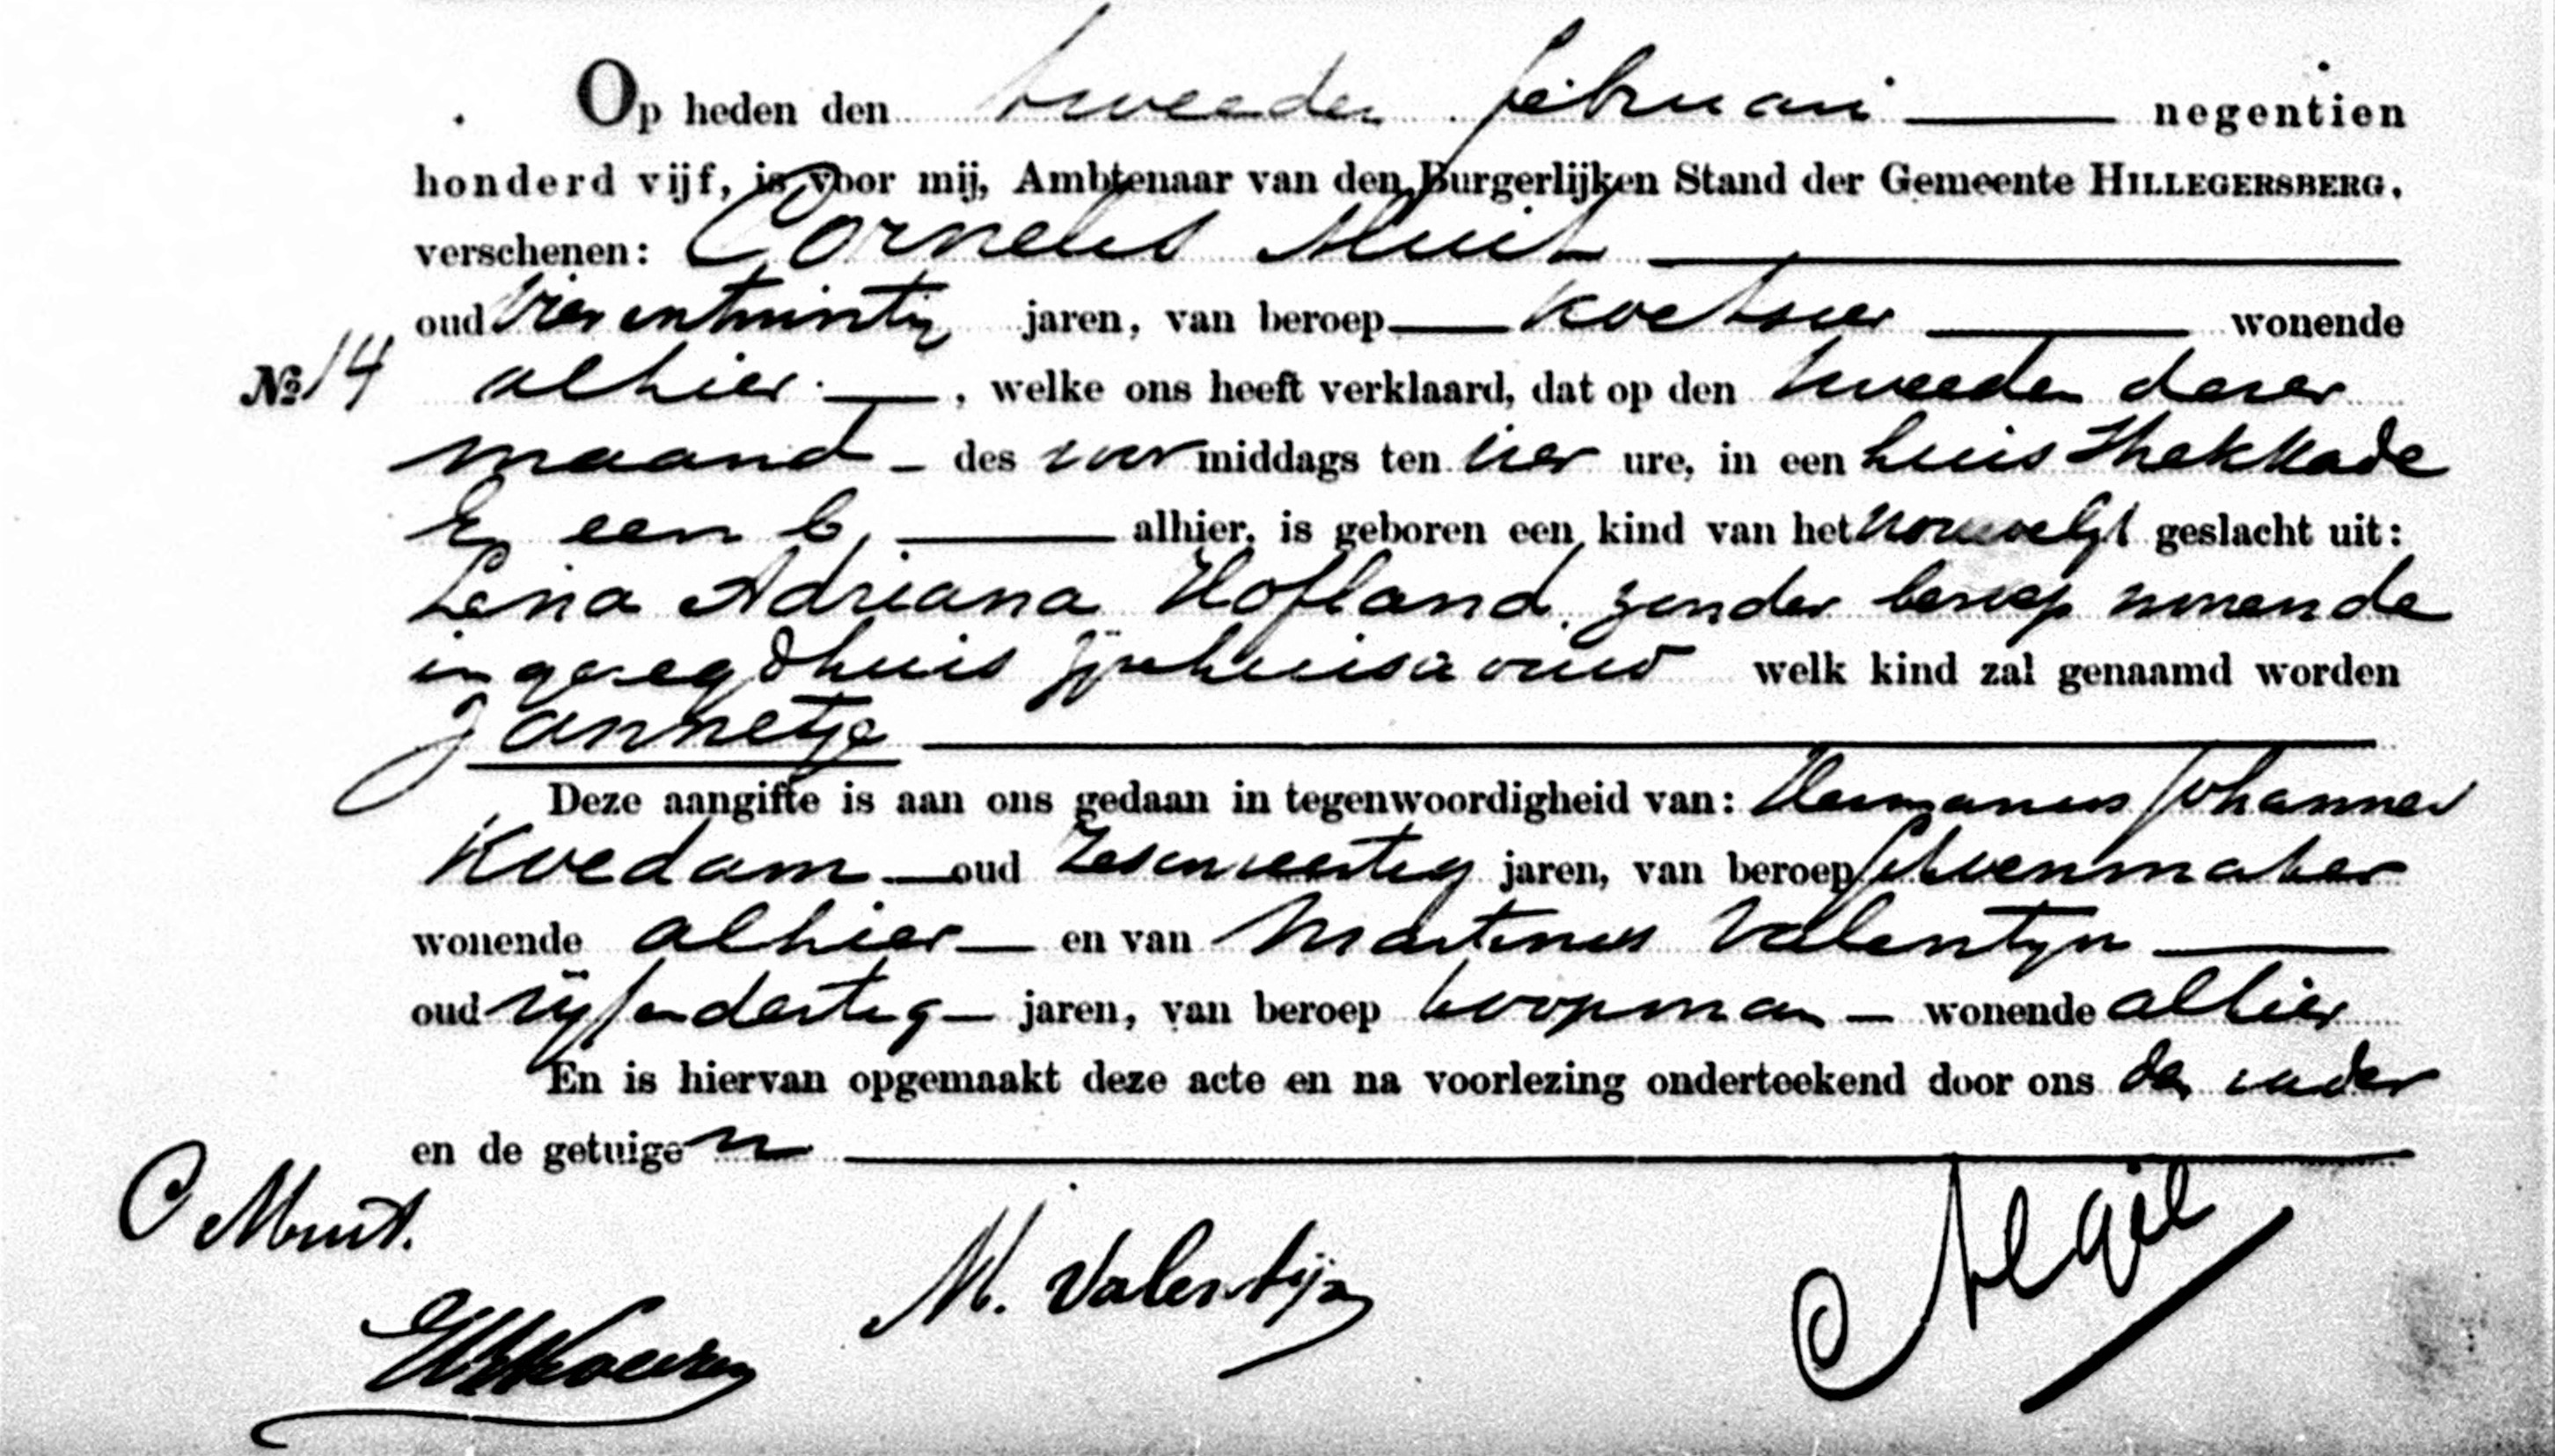 Op heden den tweeden februari negentien
honderd vijf, is voor mij, Ambtenaar van den Burgerlijken Stand der Gemeente HILLEGERSBERG,
verschenen: Cornelis Muit
oud vierentwintig jaren, van beroep koetsier wonende
No 14 alhier, welke ons heeft verklaard, dat op den tweeden dezer
maand des voormiddags ten vier ure, in een huis Shekkade
E een b, alhier, is geboren een kind van het vrouwelijk geslacht uit:
Lena Adriana Hofland, zonder beroep wonende
in gezegd huis zijne huisvrouw welk kind zal genaamd worden
Jannetje
Deze aangifte is aan ons gedaan in tegenwoordigheid van: Hermanus Johannes
Koedam oud zesenveertig jaren, van beroep schoenmaker
wonende alhier en van Martinus Valentijn
oud vijfendertig jaren, van beroep koopman wonende alhier
En is hiervan opgemaakt deze acte en na voorlezing onderteekend door ons den vader
en de getuigen
C Muit.
M. Valentijn